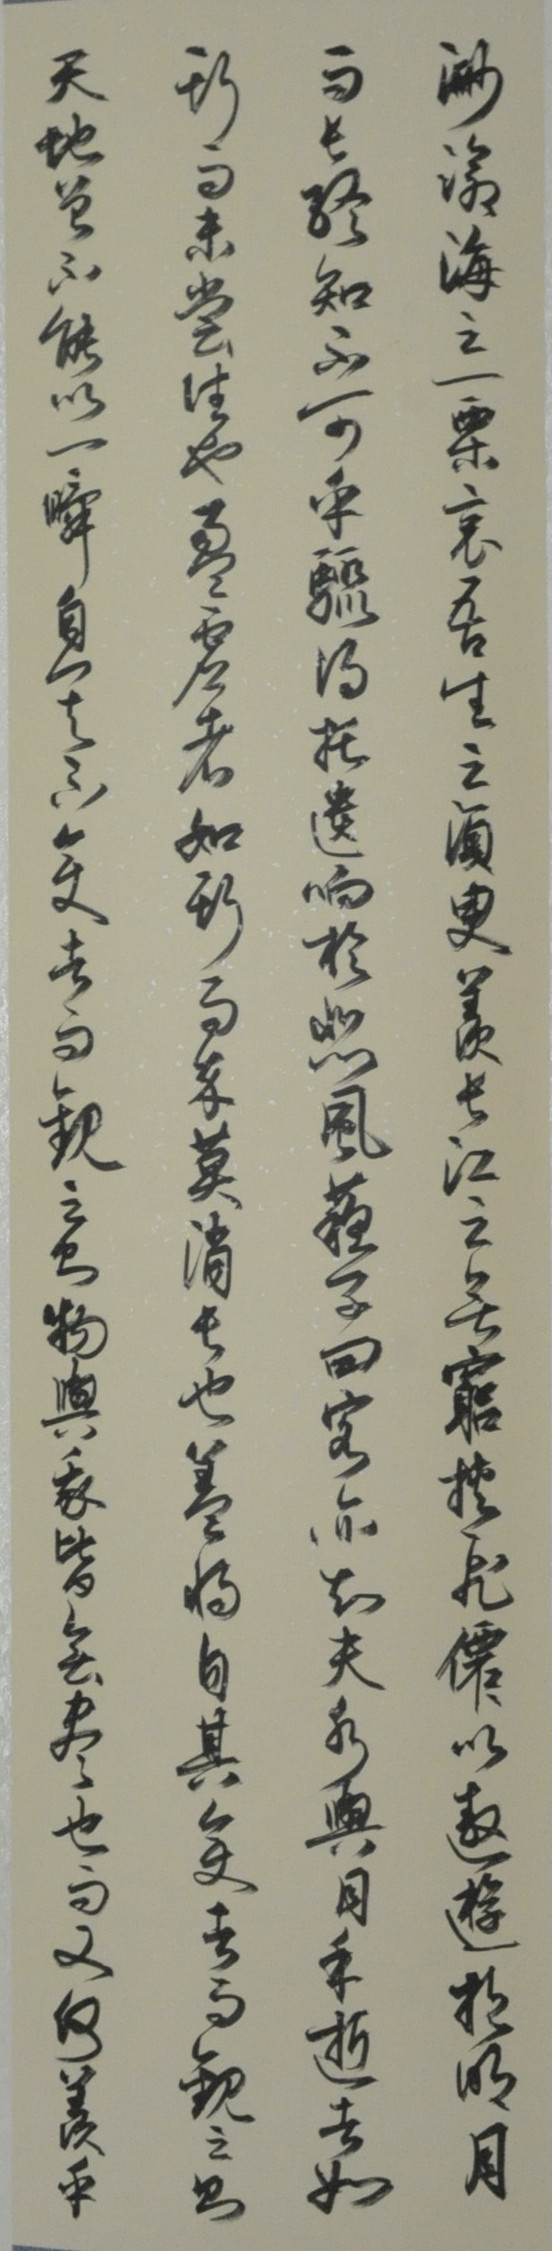 渺滄海之一粟哀吾生之須臾羨長江之無窮挾飛僊以遨遊抱明月
而長終知不可乎驟得托遺响於悲風蘇子曰客亦知夫水與月乎逝者如
斯而未嘗往也盈虛者如斯而卒莫消長也蓋將自其變者而觀之則
天地曾不能以一瞬自其不變者而觀之則物與我皆無盡也而又何羨乎